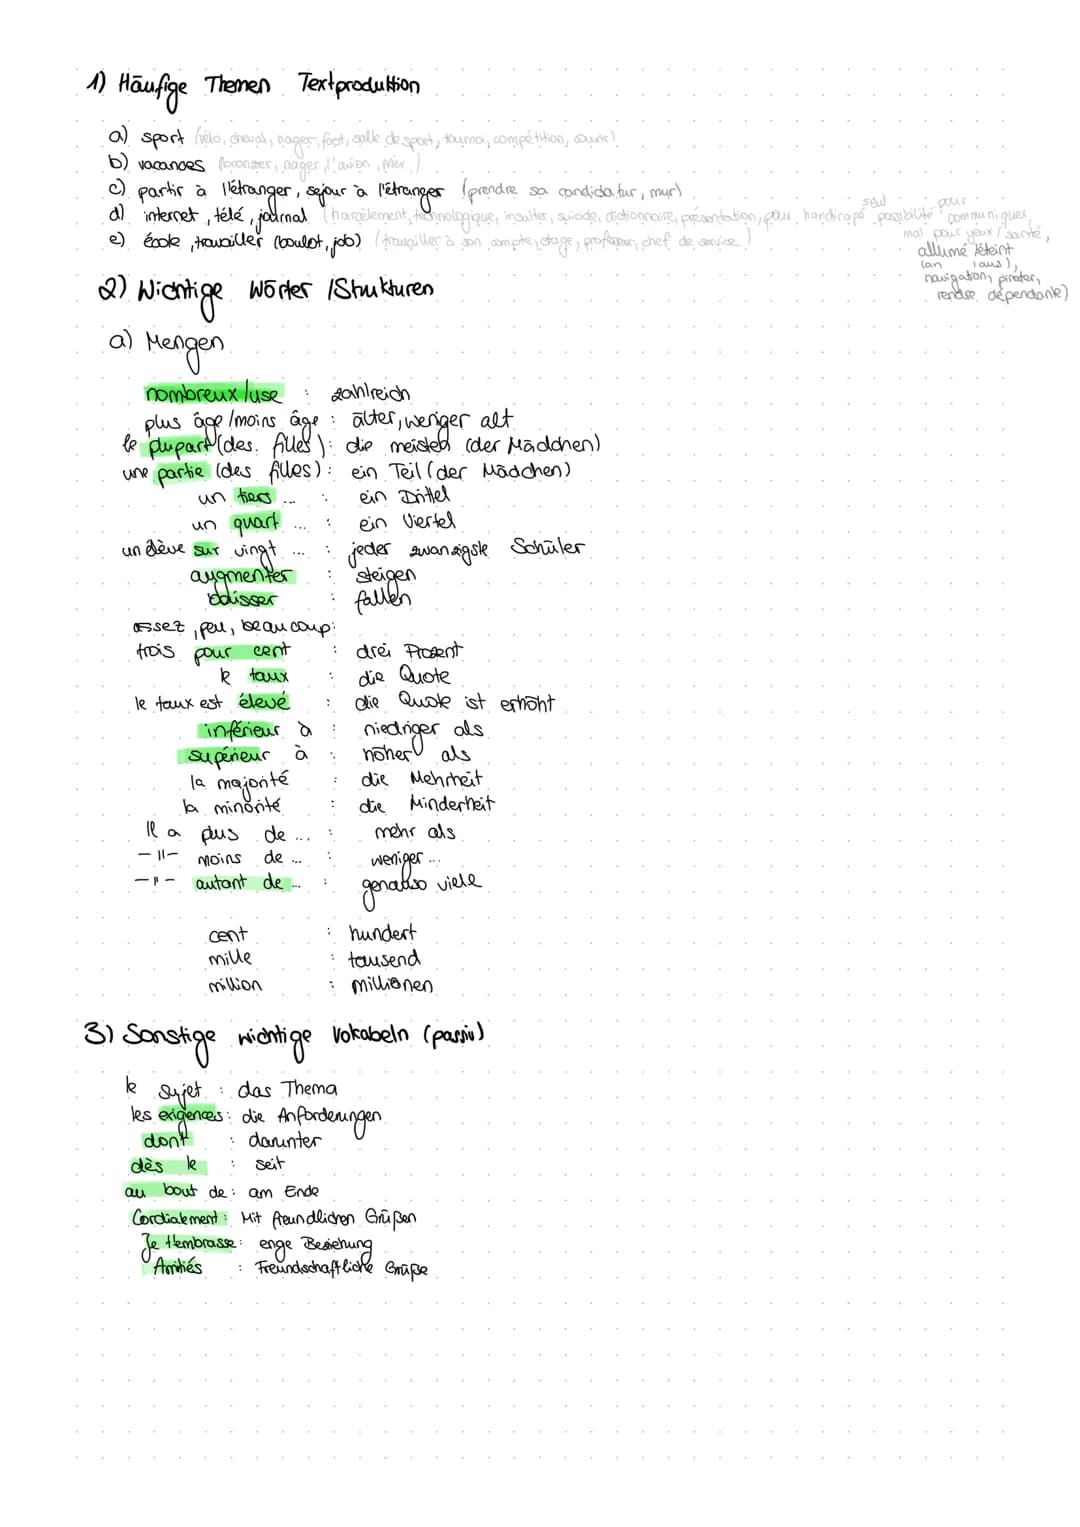 1) Häufige Themen Textproduktion
a) sport (vélo, cheval, nager, foot, salle de sport, tournoi, compétition, courir)
b) vacances (bronzer, nager, l'avion, mer)
c) partir à l'étranger, sejour à l'étranger (prendre sa condidatur, mur)
d) internet, télé, journal (harcèlement, technologique, insulter, suicide, dictionnaire, présentation, pour handicapé, possibilité pour communiquer,
seul
mal pour yeux / santé,
allumé / éteint
(an / aus),
navigation, pirater,
rendre dépendante)
e) école, travailler (boulot, job) (travailler à son compte, stage, professeur, chef de service)
2) Wichtige Wörter / Strukturen
a) Mengen
nombreux/use : zahlreich
plus âge / moins âge : älter, weniger alt
le plupart (des filles) : die meisten (der Mädchen)
une partie (des filles) : ein Teil (der Mädchen)
un tiers ... : ein Drittel
un quart ... : ein Viertel
un élève sur vingt ... : jeder zwanzigste Schüler
augmenter : steigen
baisser : fallen
assez, peu, beaucoup:
trois pour cent : drei Prozent
le taux : die Quote
le taux est élevé : die Quote ist erhöht
inférieur à : niedriger als
supérieur à : höher als
la majorité : die Mehrheit
la minorité : die Minderheit
Il a plus de ... : mehr als
-"- moins de ... : weniger ...
-"- autant de ... : genauso viele
cent : hundert
mille : tausend
million : millionen
3) Sonstige wichtige Vokabeln (passiv)
le sujet : das Thema
les exigences : die Anforderungen
dont : darunter
dès le : seit
au bout de : am Ende
Cordialement : Mit freundlichen Grüßen
Je t'embrasse : enge Beziehung
Amitiés : Freundschaftliche Grüße